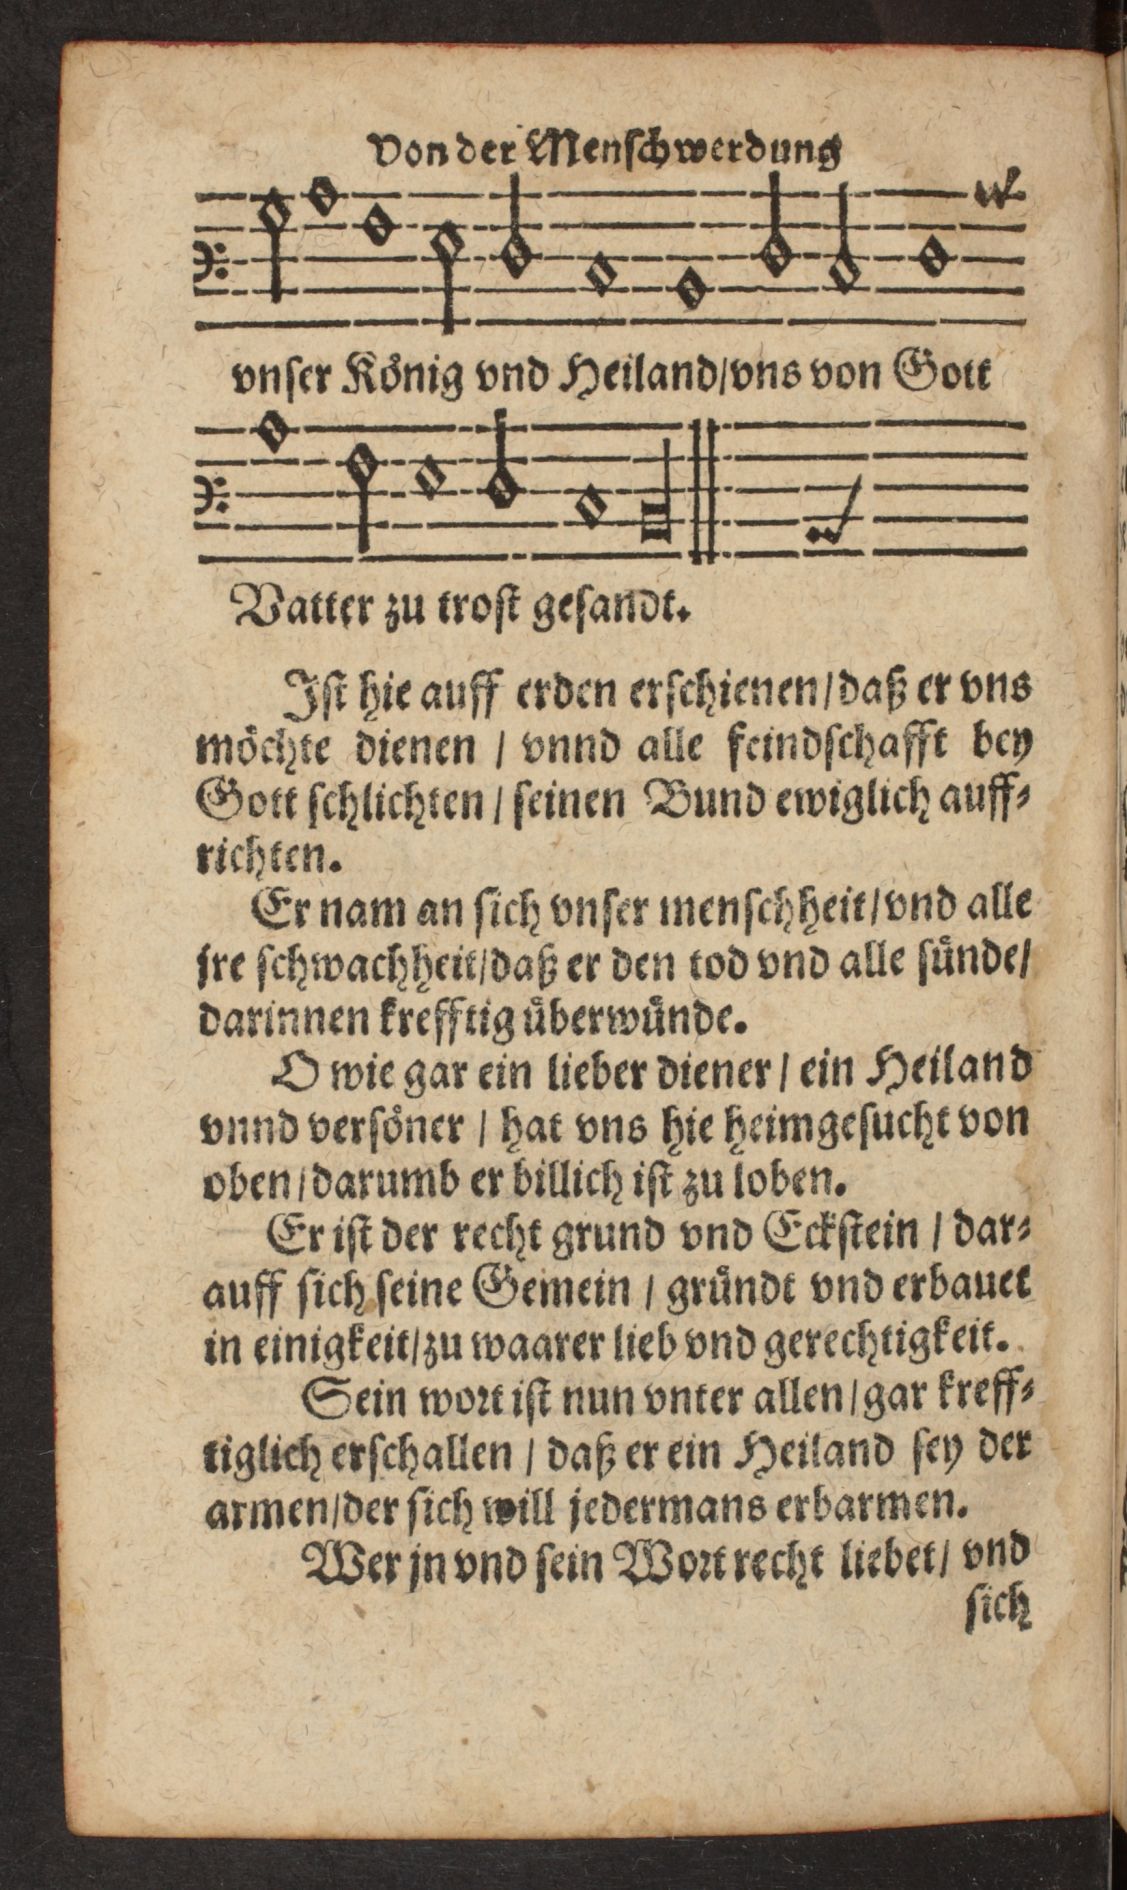 Von der Menschwerdung
vnser König vnd Heiland/vns von Gott
Vatter zu trost gesandt.
Ist hie auff erden erschienen/daß er vns
möchte dienen / vnnd alle feindschafft bey
Gott schlichten / seinen Bund ewiglich auff-
richten.
Er nam an sich vnser menschheit/vnd alle
jre schwachheit/daß er den tod vnd alle sünde/
darinnen krefftig überwünde.
O wie gar ein lieber diener / ein Heiland
vnnd versöner / hat vns hie heimgesucht von
oben/darumb er billich ist zu loben.
Er ist der recht grund vnd Eckstein / dar-
auff sich seine Gemein / gründt vnd erbauet
in einigkeit/zu waarer lieb vnd gerechtigkeit.
Sein wort ist nun vnter allen/gar kreff-
tiglich erschallen / daß er ein Heiland sey der
armen/der sich will jedermans erbarmen.
Wer jn vnd sein Wort recht liebet/ vnd
sich